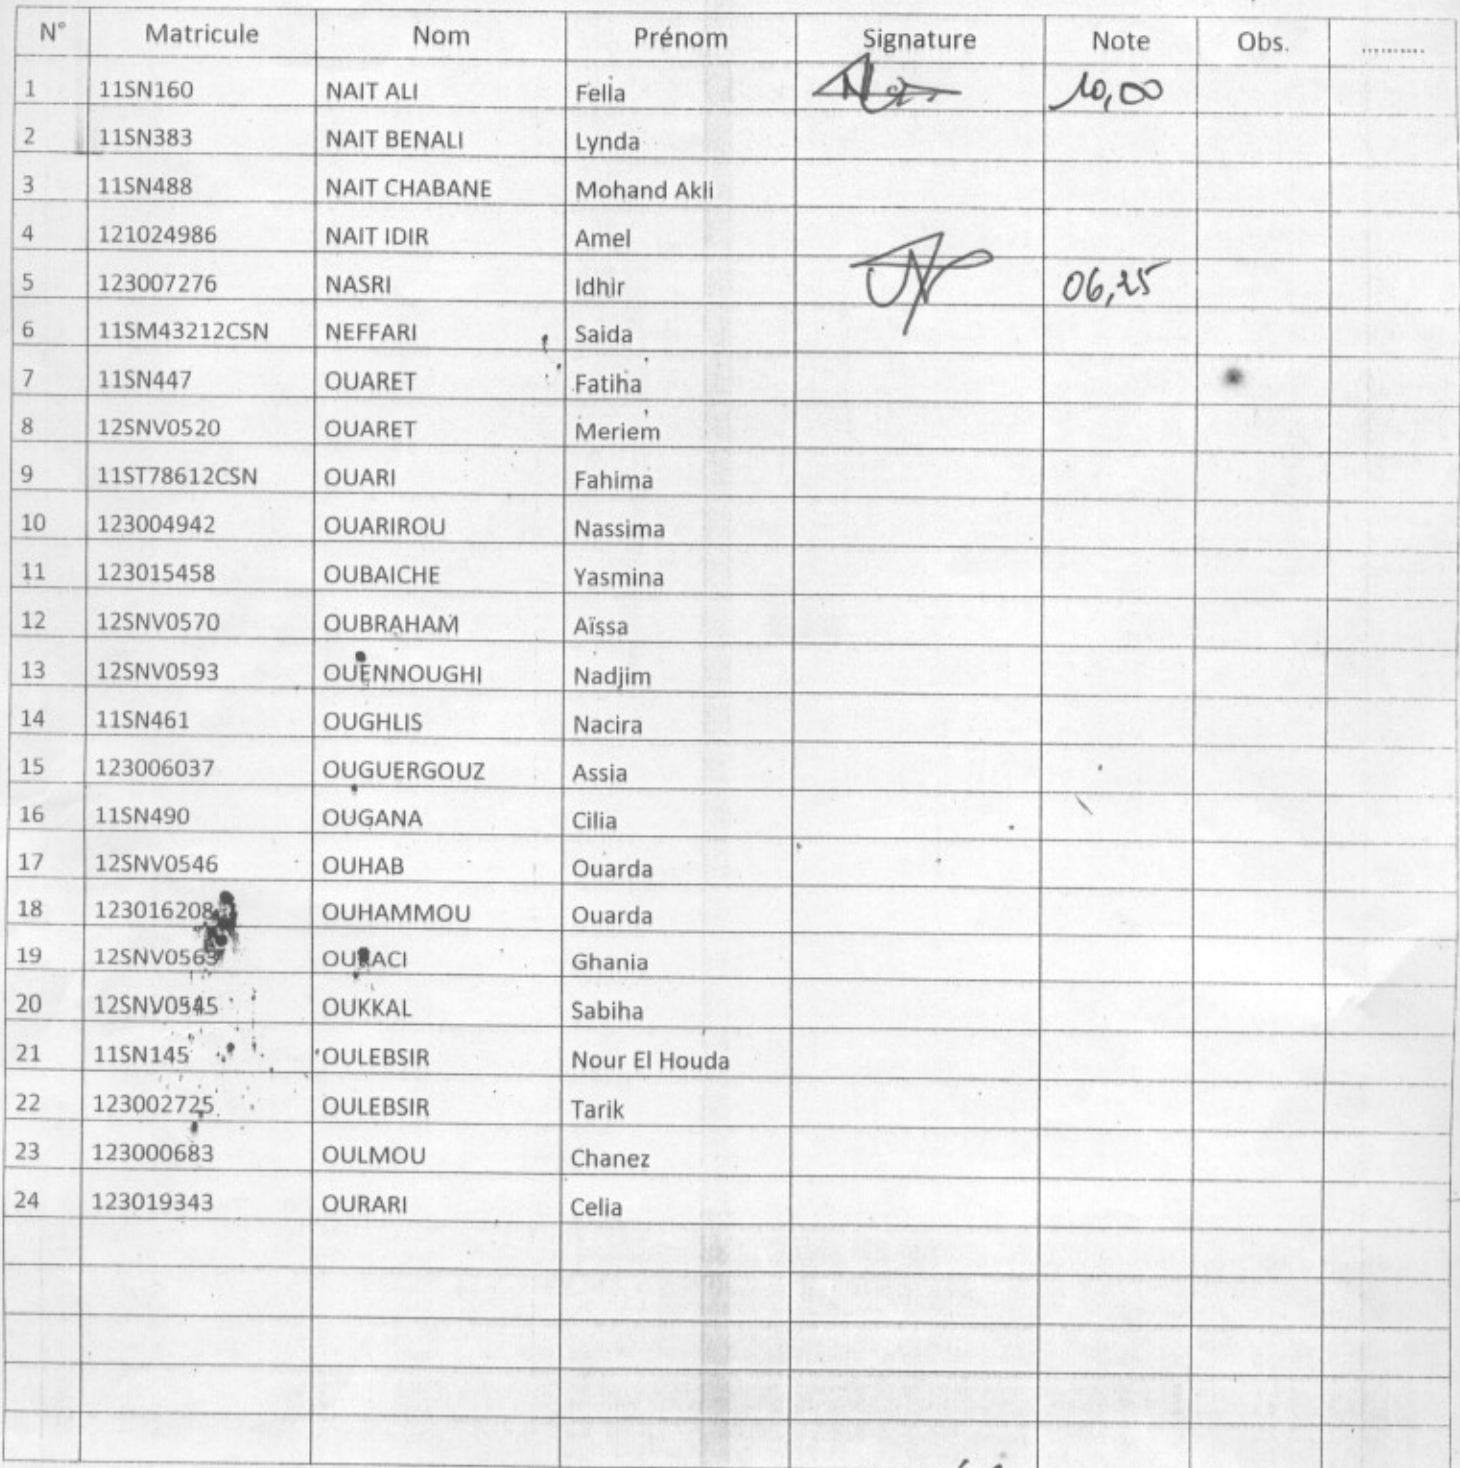 N° Matricule Nom Prénom Signature Note Obs. ..........
1 11SN160 NAIT ALI Fella 10,00
2 11SN383 NAIT BENALI Lynda
3 11SN488 NAIT CHABANE Mohand Akli
4 121024986 NAIT IDIR Amel
5 123007276 NASRI Idhir 06,25
6 11SM43212CSN NEFFARI Saida
7 11SN447 OUARET Fatiha
8 12SNV0520 OUARET Meriem
9 11ST78612CSN OUARI Fahima
10 123004942 OUARIROU Nassima
11 123015458 OUBAICHE Yasmina
12 12SNV0570 OUBRAHAM Aïssa
13 12SNV0593 OUENNOUGHI Nadjim
14 11SN461 OUGHLIS Nacira
15 123006037 OUGUERGOUZ Assia
16 11SN490 OUGANA Cilia
17 12SNV0546 OUHAB Ouarda
18 123016208 OUHAMMOU Ouarda
19 12SNV0563 Ghania
20 12SNV0545 OUKKAL Sabiha
21 11SN145 OULEBSIR Nour El Houda
22 123002725 OULEBSIR Tarik
23 123000683 OULMOU Chanez
24 123019343 OURARI Celia